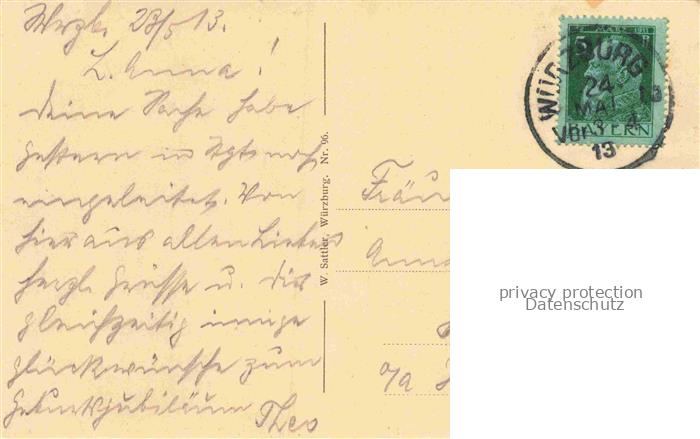 Wrzb. 23/5 13.
L. Anna!
Deine Sache habe
gestern in
eingeleitet. Von
hier aus allen Lieben
herzl. Grüsse u. Dir
gleichzeitig innige
Glückwünsche zum
Geburtsjubiläum Theo
W. Sattler, Würzburg. Nr. 96.
WÜRZBURG
24
MAI
Vor. 3-4
13
5
BAYERN
Fräu
Anna
o/a
privacy protection
Datenschutz